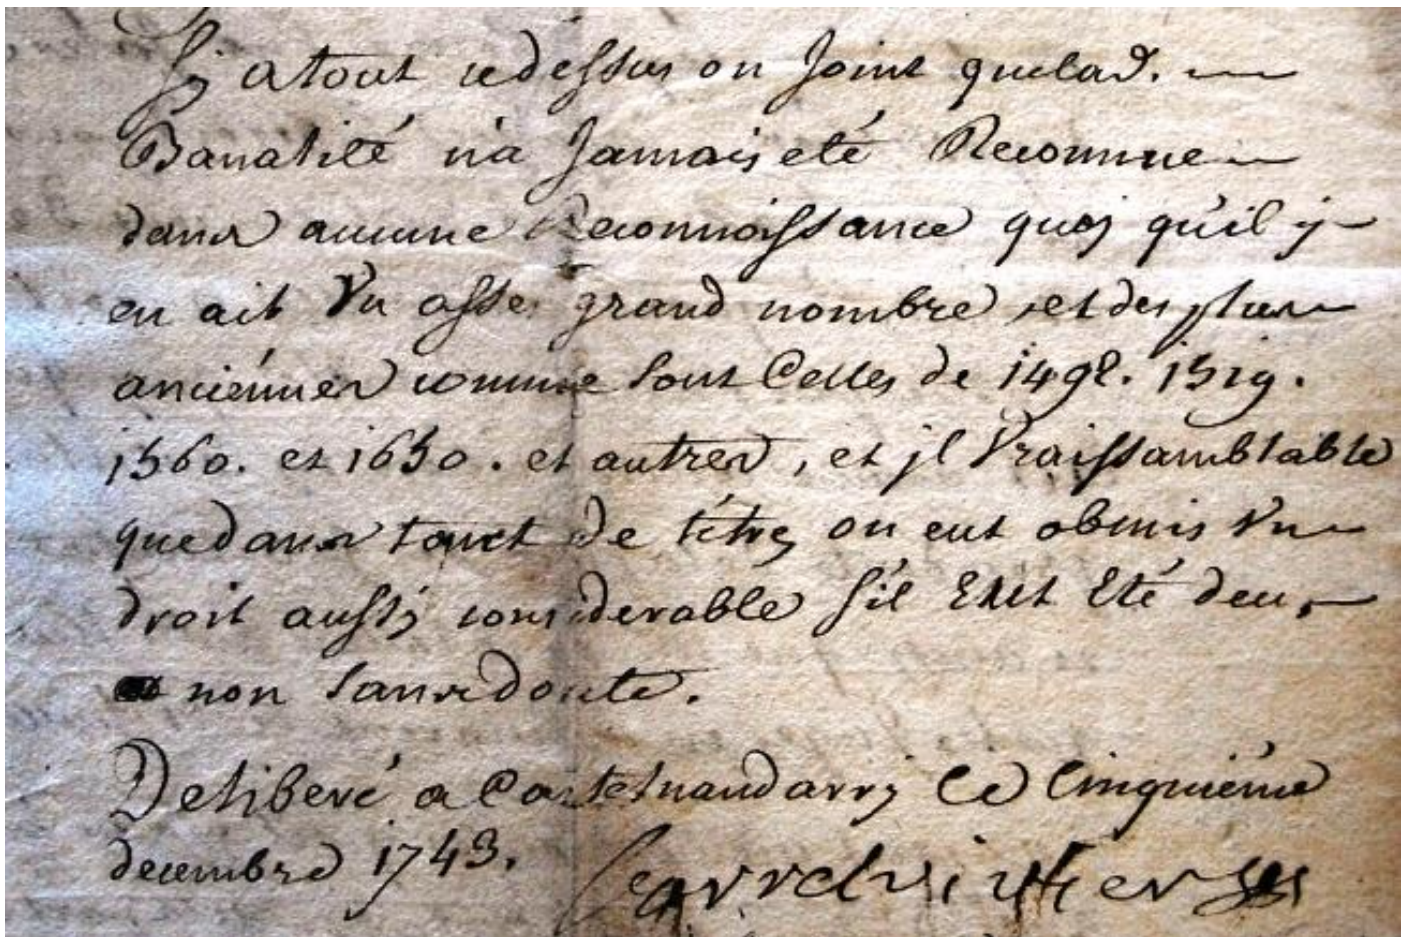 Sy atout cedessus on Joint quelad.
Banalité n'a Jamais eté Reconnue
dans aucune Reconnoissance quoj qu'il y
en ait Vu asse grand nombre, et des plus
anciénnes comme sont Celles de 1498. 1519.
1560. et 1650. et autres, et jl Vraissamblable
quedans tant de titres on eut obmis Vn
droit aussy considerable s'il Eut Eté deu,
non sans doute.
Deliberé a Castelnaudarry Ce Cinquiéme
decembre 1743.